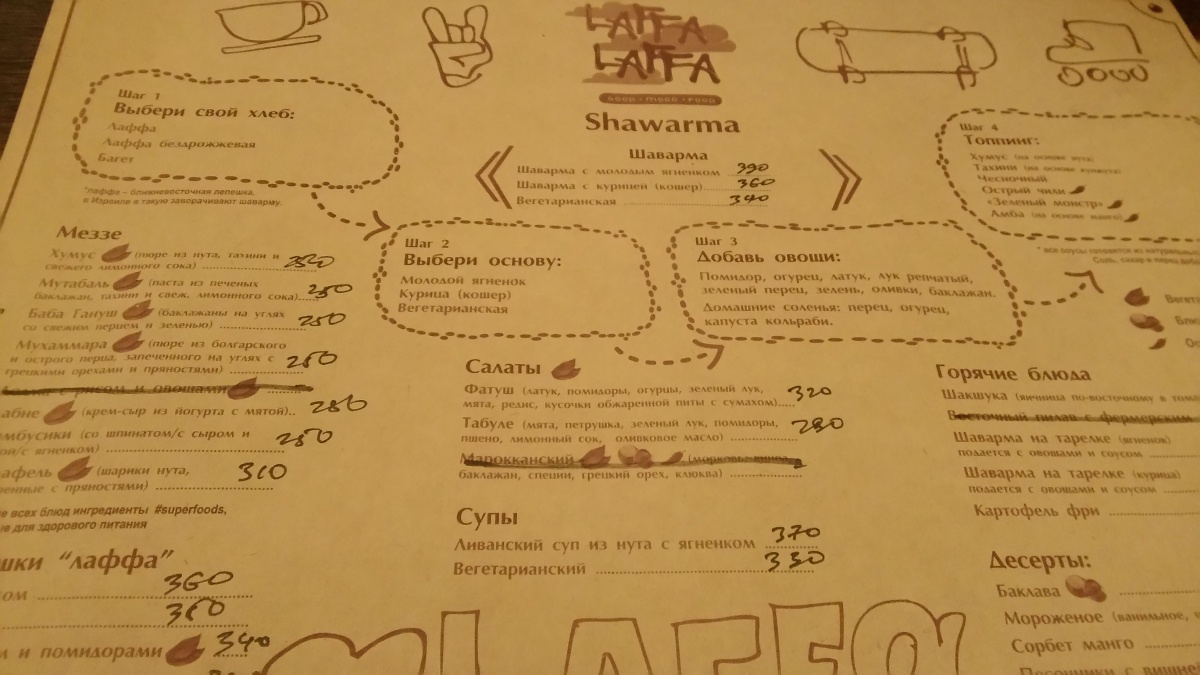 LAFFA
LAFFA
GOOD • MOOD • FOOD
Shawarma
Шаг 1
Выбери свой хлеб:
Лаффа
Лаффа бездрожжевая
Багет
*лаффа – ближневосточная лепешка,
в Израиле в такую заворачивают шаварму.
Шаварма
Шаварма с молодым ягненком 390
Шаварма с курицей (кошер) 360
Вегетарианская 340
Шаг 2
Выбери основу:
Молодой ягненок
Курица (кошер)
Вегетарианская
Шаг 3
Добавь овощи:
Помидор, огурец, латук, лук репчатый,
зеленый перец, зелень, оливки, баклажан.
Домашние соленья: перец, огурец,
капуста кольраби.
Шаг 4
Топпинг:
Хумус (на основе нута)
Тахини (на основе кунжута)
Чесночный
Острый чили
«Зеленый монстр»
Амба (на основе манго)
* все соусы готовятся из
Соль, сахар и перец
Меззе
Хумус (пюре из нута, тахини и
свежего лимонного сока)
Мутабаль (паста из печеных
баклажан, тахини и свеж. лимонного сока) 250
Баба Гануш (баклажаны на углях
со свежим перцем и зеленью) 250
Мухаммара (пюре из болгарского
и острого перца, запеченного на углях с
грецкими орехами и пряностями) 250
с рисом и овощами
(крем-сыр из йогурта с мятой)
(со шпинатом/с сыром и
ягненком) 250
(шарики нута, 310
с пряностями)
всех блюд ингредиенты #superfoods,
для здорового питания
"лаффа"
360
360
и помидорами 340
Салаты
Фатуш (латук, помидоры, огурцы, зеленый лук, 320
мята, редис, кусочки обжаренной питы с сумахом)
Табуле (мята, петрушка, зеленый лук, помидоры, 290
пшено, лимонный сок, оливковое масло)
Марокканский
баклажан, специи, грецкий орех, клюква)
Супы
Ливанский суп из нута с ягненком 370
Вегетарианский 330
Горячие блюда
Шакшука (яичница по-восточному в
Восточный пилав с фермерским
Шаварма на тарелке (ягненок)
подается с овощами и соусом
Шаварма на тарелке (курица)
подается с овощами и соусом
Картофель фри
Десерты:
Баклава
Мороженое (ванильное,
Сорбет манго
LAFFA